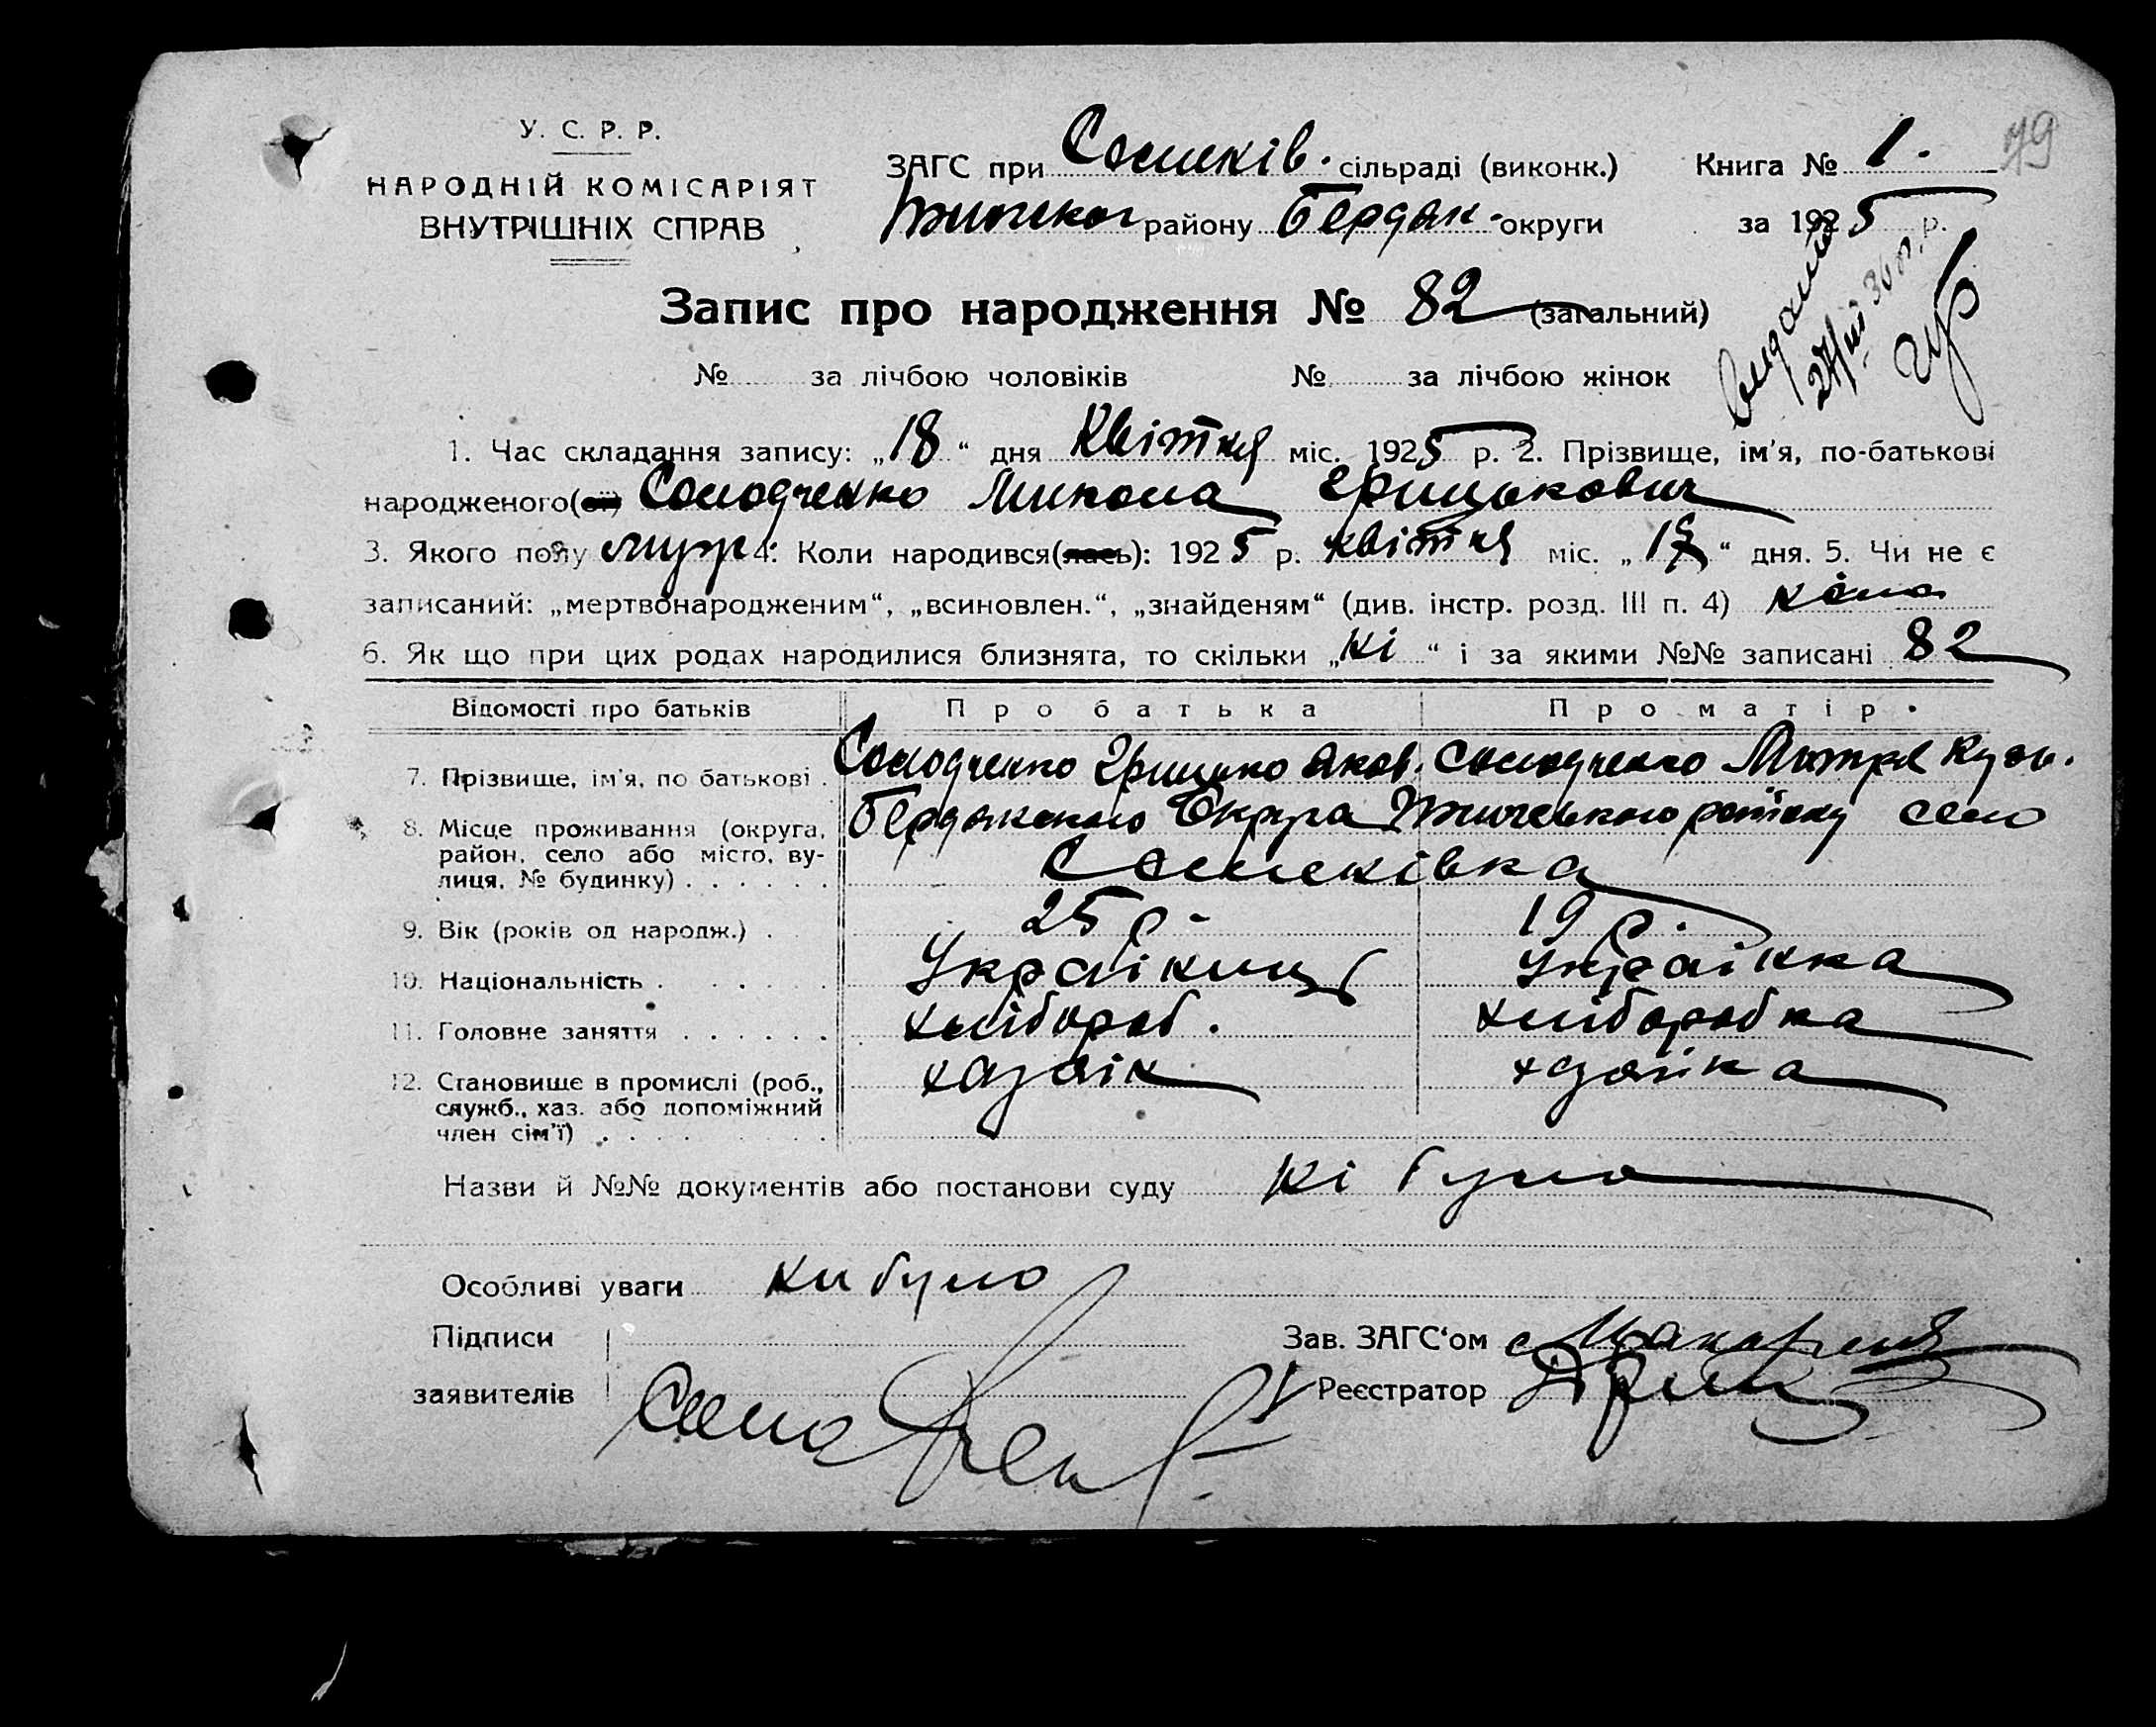 У. С. Р. Р.
НАРОДНІЙ КОМІСАРІЯТ
ВНУТРІШНІХ СПРАВ
ЗАГС при сільраді (виконк.)
району Бердян. округи
Книга № 1.
за 1925 р.
79
Запис про народження № 82 (загальний)
№ за лічбою чоловіків № за лічбою жінок
1. Час складання запису: „18“ дня Квітня міс. 1925 р. 2. Прізвище, ім'я, по-батькові
народженого Солодченко Микола Грицькович
3. Якого полу муж 4. Коли народився: 1925 р. квітня міс. „ “ дня. 5. Чи не є
записаний: „мертвонародженим“, „всиновлен.“, „знайденям“ (див. інстр. розд. III п. 4)
6. Як що при цих родах народилися близнята, то скільки „ні“ і за якими №№ записані 82
Відомості про батьків Про батька Про матір
7. Прізвище, ім'я, по батькові . Солодченко Грицько Яков. Солодченко Мотря Кузь.
8. Місце проживання (округа, район, село або місто, вулиця, № будинку) . . . . . . Бердянського району село
9. Вік (років од народж.) . 25 р. 19 р.
10. Національність . . . . . . Україниць Українка
11. Головне заняття . . . . . . хлібороб. хлиборобка
12. Становище в промислі (роб., служб., хаз. або допоміжний член сім'ї) . . . . хазяін хазяйка
Назви й №№ документів або постанови суду ні було
Особливі уваги ни було
Підписи
заявителів
Зав. ЗАГС'ом
Реєстратор